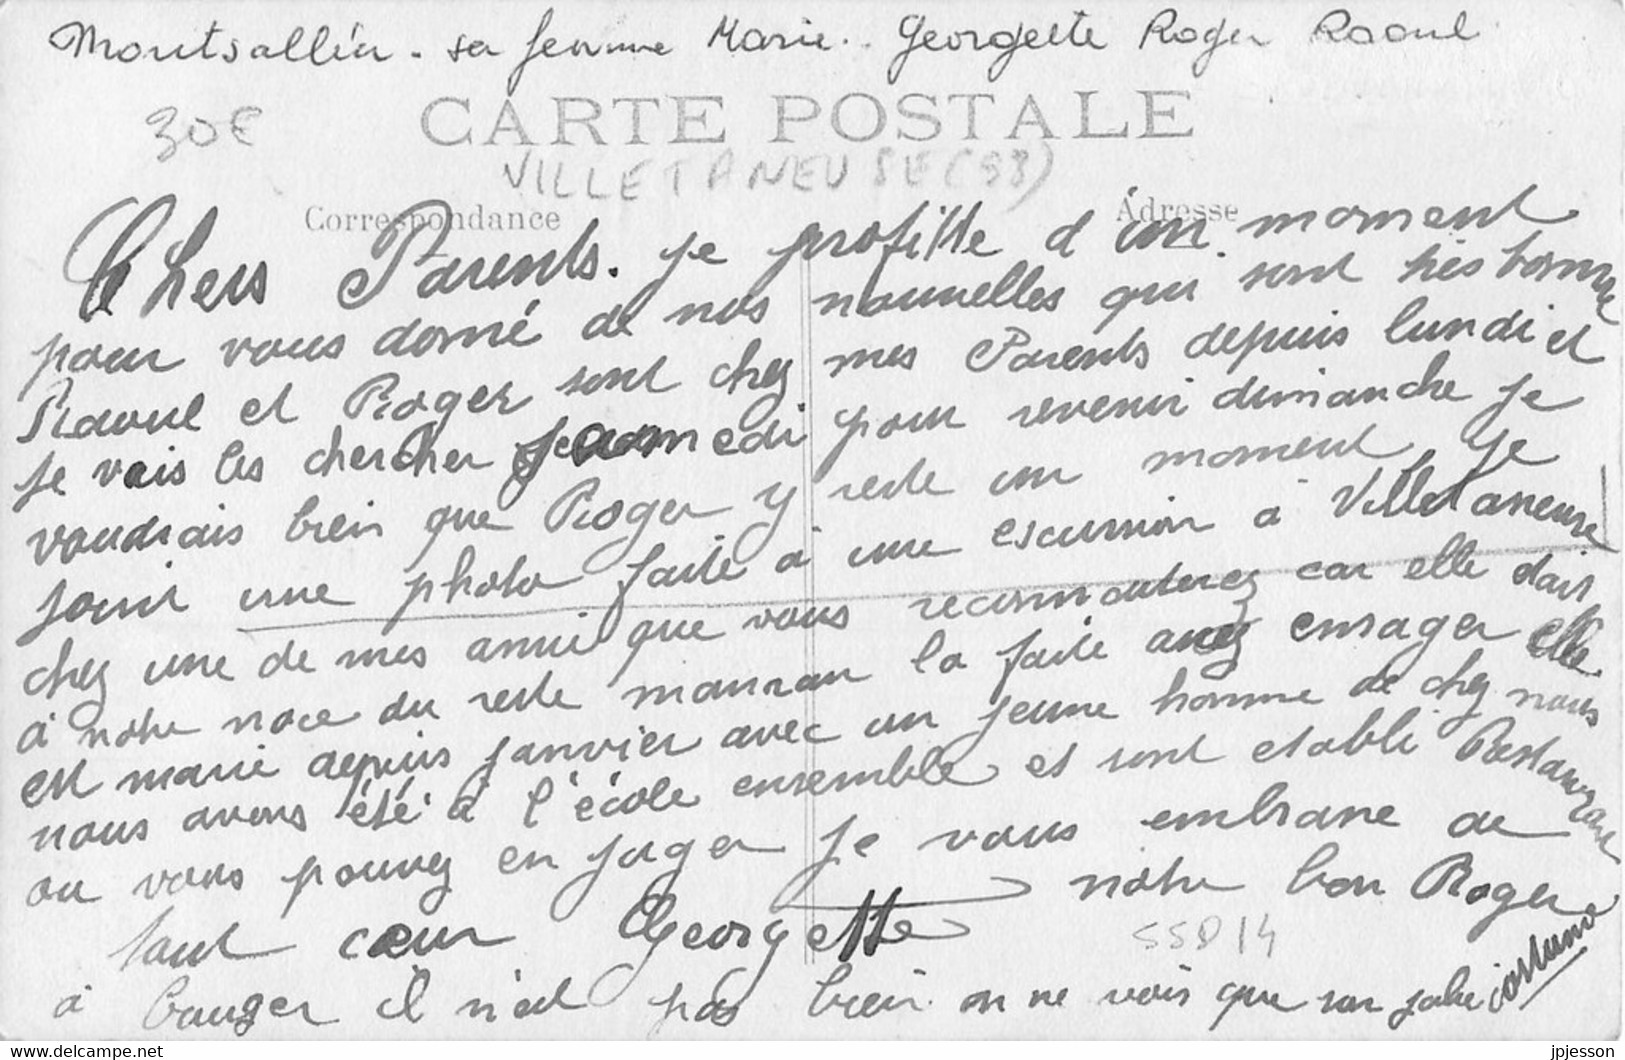 Montsallier - sa femme Marie.. Georgette Roger Raoul
30€
CARTE POSTALE
VILLETANEUSE (93)
Correspondance
Adresse
Chers Parents. je profitte d'un moment
pour vous donné de nos nouvelles qui sont très bonne
Raoul et Roger sont chez mes Parents depuis lundi et
je vais les chercher samedi pour revenir dimanche je
voudrais bien que Roger y reste un moment je
joint une photo faite à une escursion à Villetaneuse
chez une de mes amie que vous reconnaiterez car elle étais
à notre noce du reste la faite assez enrager elle
est marié depuis janvier avec un jeune homme de chez nous
nous avons été à l'école ensemble et sont etabli Restaurant
ou vous pouvez en juger je vous embrasse de
tout cœur Georgette notre bon Roger
SSD 14
à bouger il n'est pas bien on ne vois que son jolie costume
jpjesson
www.delcampe.net